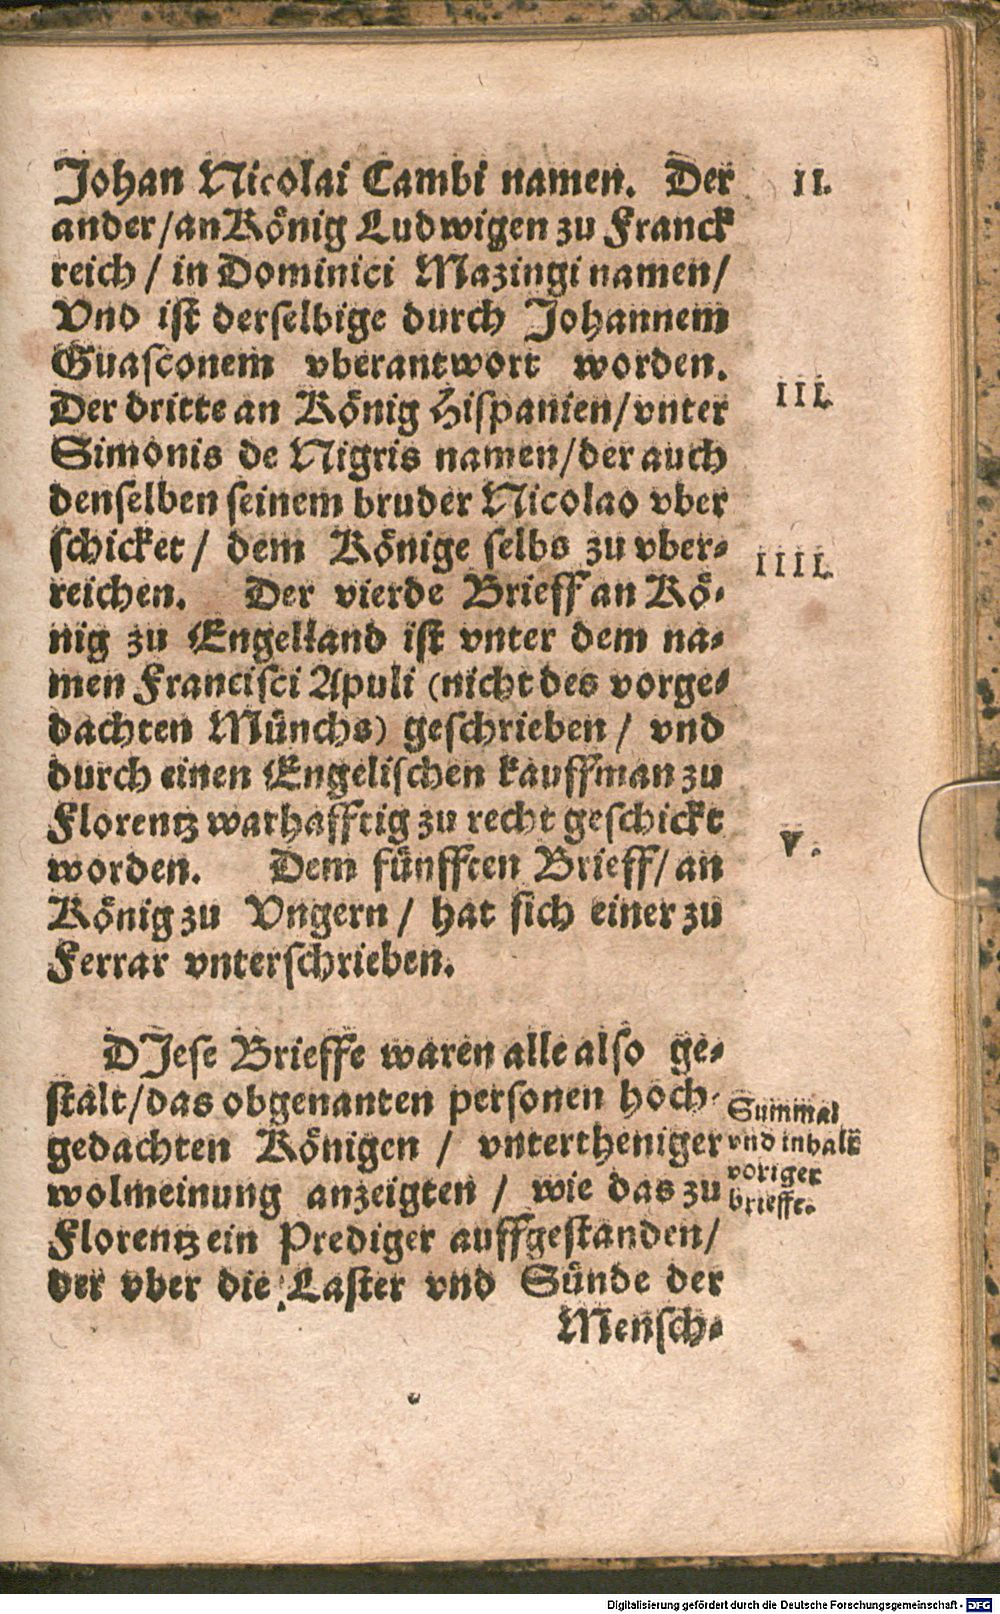 Johan Nicolai Cambi namen. Der
II.
ander/an König Ludwigen zu Franck
reich / in Dominici Mazingi namen/
Vnd ist derselbige durch Johannem
Guasconem vberantwort worden.
III.
Der dritte an König Hispanien/vnter
Simonis de Nigris namen/der auch
denselben seinem bruder Nicolao vber
schicket / dem Könige selbs zu vber⸗
IIII.
reichen. Der vierde Brieff an Kö⸗
nig zu Engelland ist vnter dem na⸗
men Francisci Apuli (nicht des vorge⸗
dachten Münchs) geschrieben / vnd
durch einen Engelischen kauffman zu
Florentz warhafftig zu recht geschickt
V.
worden. Dem fünfften Brieff/an
König zu Vngern / hat sich einer zu
Ferrar vnterschrieben.
DJese Brieffe waren alle also ge⸗
stalt/das obgenanten personen hoch⸗
gedachten Königen / vntertheniger
wolmeinung anzeigten / wie das zu
Florentz ein Prediger auffgestanden/
der vber die Laster vnd Sünde der
Mensch⸗
Summa
vnd inhalt
voriger
brieffe.
Digitalisierung gefördert durch die Deutsche Forschungsgemeinschaft - DFG